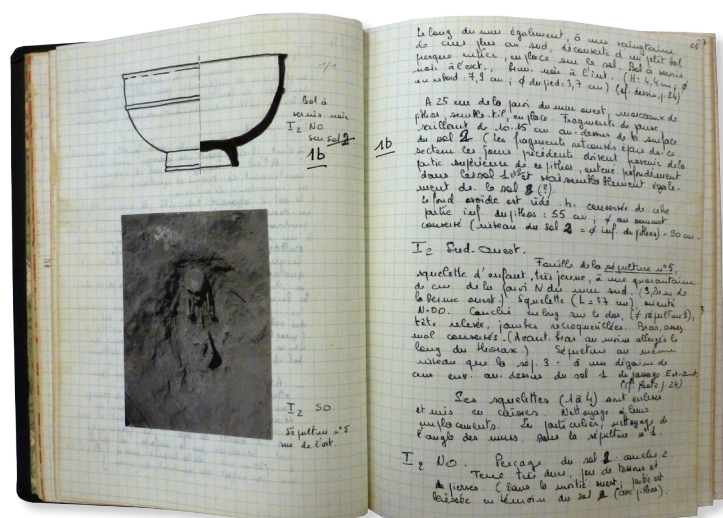 1/1
Bol à
vernis noir
I2 NO
sur sol 2
1b
I2 SO
Sépulture n°5
vue de l'est.
257
Le long du mur également, à une vingtaine
de cms plus au sud, découverte d'un petit bol
presque entier, en place sur le sol. Bol à vernis
noir à l'ext. noir à l'int. (H: 4,4 cm; ϕ
au rebord: 7,9 cm; ϕ du pied: 3,7 cm) (cf. dessin, p.24)
A 25 cm de la paroi du mur ouest, morceaux de
pithos, semble-t-il, en place. Fragments de panse
saillant de 10-15 cm au-dessus de la surface
1b
du sol 2 (les fragments retrouvés dans ce
secteur les jours précédents doivent provenir de la
partie supérieure de ce pithos, enterré profondément
dans le sol et vraisemblablement égale-
ment de le sol 3 (?).
Le fond ovoïde est vide: h. conservée de cette
partie inf. du pithos: 55 cm; ϕ au sommet
conservé (niveau du sol 2 = ϕ inf. du pithos) = 90 cm.
I2 Sud-Ouest.
Fouille de la sépulture n°5,
squelette d'enfant, très jeune, à une quarantaine
de cm de la paroi N du mur sud. (3,20 m de
la berme ouest.) Squelette (L = 37 cm), orienté
N-OO. Couché en long sur le dos, (≠ sépulture 3), ?
tête relevée, jambes recroquevillées. Bras, assez
mal conservés. (Avant-bras au moins allongés le
long du thorax.) Sépulture au même
niveau que la sép. 3: à une dizaine de
cms env. au-dessus du sol 1 du passage Est-Ouest.
(cf. photo p.24)
Les squelettes (1 à 4) sont enlevés
et mis en caisses. Nettoyage à leurs
emplacements. En particulier, nettoyage de
l'angle des murs, sous la sépulture n°1.
I2 NO. Perçage du sol 2. couche 2.
Terre très dure, peu de tessons et
de pierres. (Dans la moitié ouest, partie est
laissée en témoin du sol 2 (avec pithos).